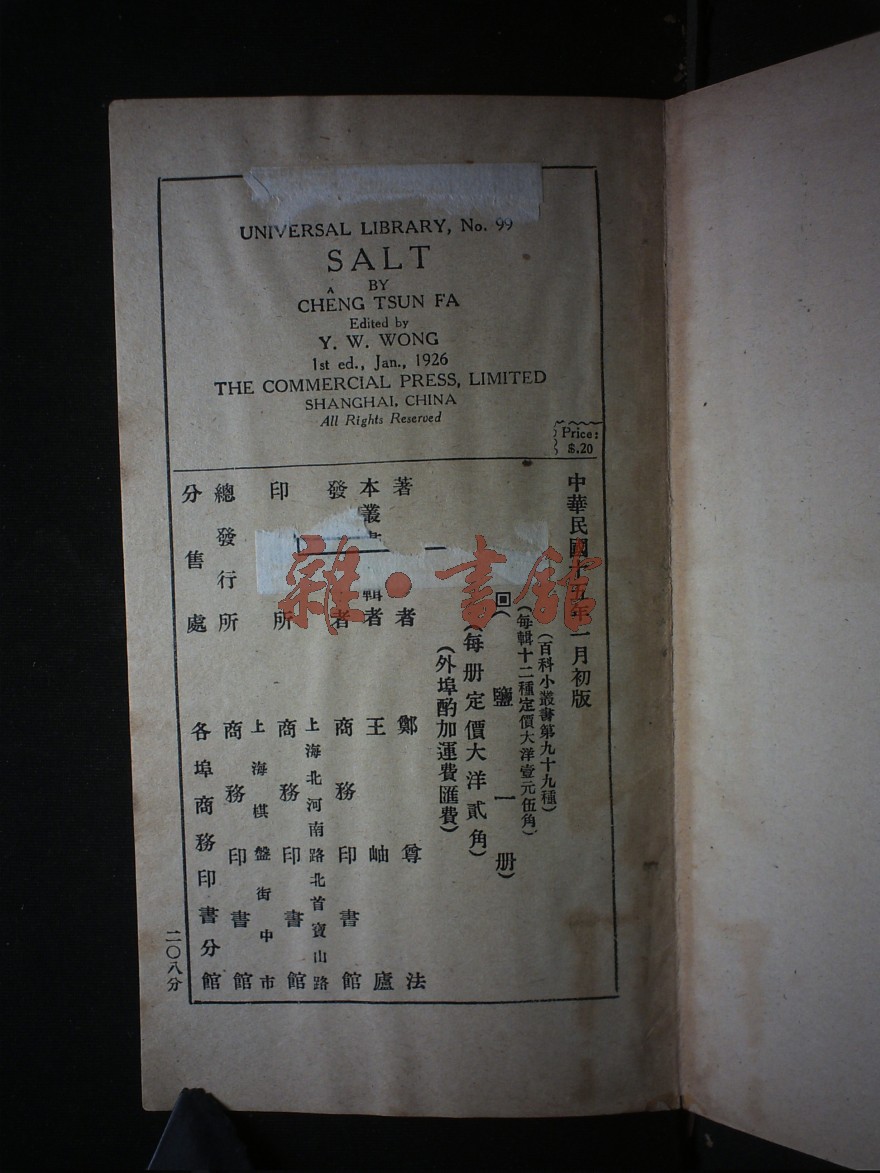 UNIVERSAL LIBRARY, No. 99
SALT
BY
CHÊNG TSUN FA
Edited by
Y. W. WONG
1st ed., Jan., 1926
THE COMMERCIAL PRESS, LIMITED
SHANGHAI, CHINA
All Rights Reserved
Price:
$.20
中華民國十五年一月初版
(百科小叢書第九十九種)
(每輯十二種定價大洋壹元伍角)
回(鹽一册)
(每册定價大洋貳角)
(外埠酌加運費匯費)
著者 鄭尊法
本叢書 輯者 王岫廬
發 者 商務印書館
上海北河南路北首寶山路
印 所 商務印書館
上海棋盤街中市
總發行所 商務印書館
分售處 各埠商務印書分館
二〇八分
雜·書館